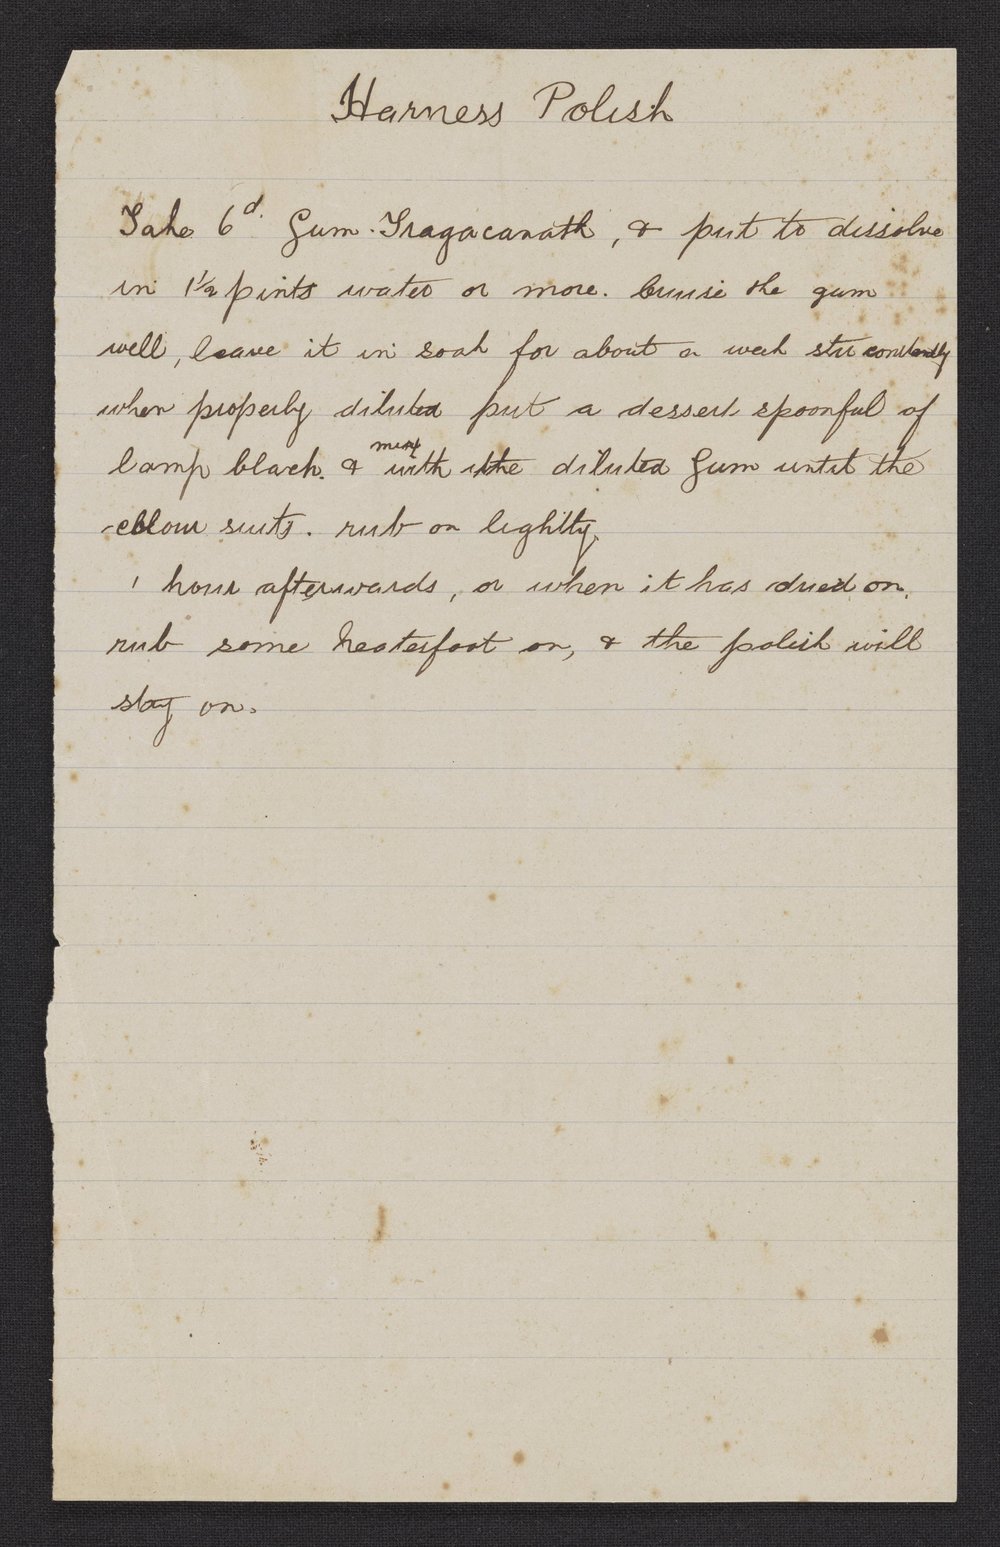 Harness Polish
Take 6d. Gum. Tragacanath, & put to dissolve
in 1½ pints water or more. bruise the gum
well, leave it in soak for about a week stir constantly
when properly diluted put a dessert spoonful of
lamp black. & mix with the diluted Gum until the
colour suits. rub on lightly.
1 hour afterwards, or when it has dried on,
rub some Neatsfoot on, & the polish will
stay on.